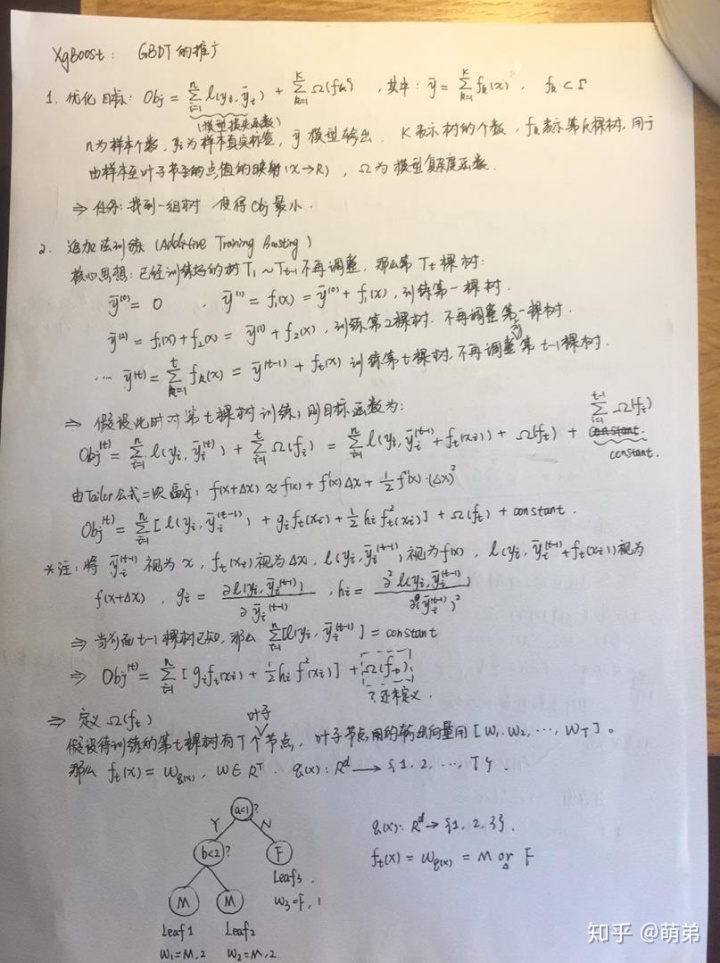 XgBoost: GBDT的推广
1. 优化目标: Obj = Σ_{i=1}^{n} l(yi, ȳi) + Σ_{k=1}^{K} Ω(fk) , 其中: ȳ = Σ_{k=1}^{K} fk(x), fk ⊂ Γ
(模型损失函数)
n为样本个数, yi为样本真实标签, ȳ 模型输出. K表示树的个数, fk表示第k棵树, 用于
由样本至叶子节点的点值的映射(x→R), Ω为模型复杂度函数.
⇒ 任务: 找到一组树 使得Obj最小.
2. 追加法训练 (Additive Training Boosting)
核心思想: 已经训练好的树T1~Tt-1不再调整, 那么第Tt棵树:
ȳ^(0) = 0 , ȳ^(1) = f1(x) = ȳ^(0) + f1(x), 训练第一棵树.
ȳ^(2) = f1(x)+f2(x) = ȳ^(1) + f2(x), 训练第2棵树. 不再调整第一棵树.
... ȳ^(t) = Σ_{k=1}^{t} fk(x) = ȳ^(t-1) + ft(x) 训练第t棵树, 不再调整前t-1棵树.
⇒ 假设此时对第t棵树训练, 则目标函数为:
Obj^(t) = Σ_{i=1}^{n} l(yi, ȳi^(t)) + Σ_{i=1}^{t} Ω(fi) = Σ_{i=1}^{n} l(yi, ȳi^(t-1) + ft(xi)) + Ω(ft) + Σ_{i=1}^{t-1} Ω(fi)
constant.
由Tailor公式=次展示: f(x+Δx) ≈ f(x) + f'(x)Δx + ½f''(x)·(Δx)²
Obj^(t) = Σ_{i=1}^{n} [l(yi, ȳi^(t-1)) + gi ft(xi) + ½hi ft²(xi)] + Ω(ft) + constant.
*注: 将 ȳi^(t-1) 视为 x, ft(xi)视为Δx, l(yi, ȳi^(t-1))视为f(x), l(yi, ȳi^(t-1)+ft(xi))视为
f(x+Δx) , gi = ∂l(yi, ȳi^(t-1)) / ∂ȳi^(t-1) , hi = ∂²l(yi, ȳi^(t-1)) / ∂(ȳi^(t-1))²
⇒ 当前面t-1棵树已知, 那么 Σ_{i=1}^{n} [l(yi, ȳi^(t-1))] = constant
⇒ Obj^(t) = Σ_{i=1}^{n} [gi ft(xi) + ½hi f²(xi)] + Ω(ft)
? 还未定义.
⇒ 定义 Ω(ft)
假设待训练的第t棵树有T个叶子节点, 叶子节点用的输出向量用 [W1, W2, ..., WT]。
那么 ft(x) = Wq(x), W∈R^T. q(x): R^d → {1, 2, ..., T}.
a<1?
Y N
b<2? F
Leaf3.
W3=F, 1
M M
Leaf1 Leaf2
W1=M,2 W2=M,2
q(x): R^d → {1, 2, 3}.
ft(x) = Wq(x) = M or F
知乎 @萌弟